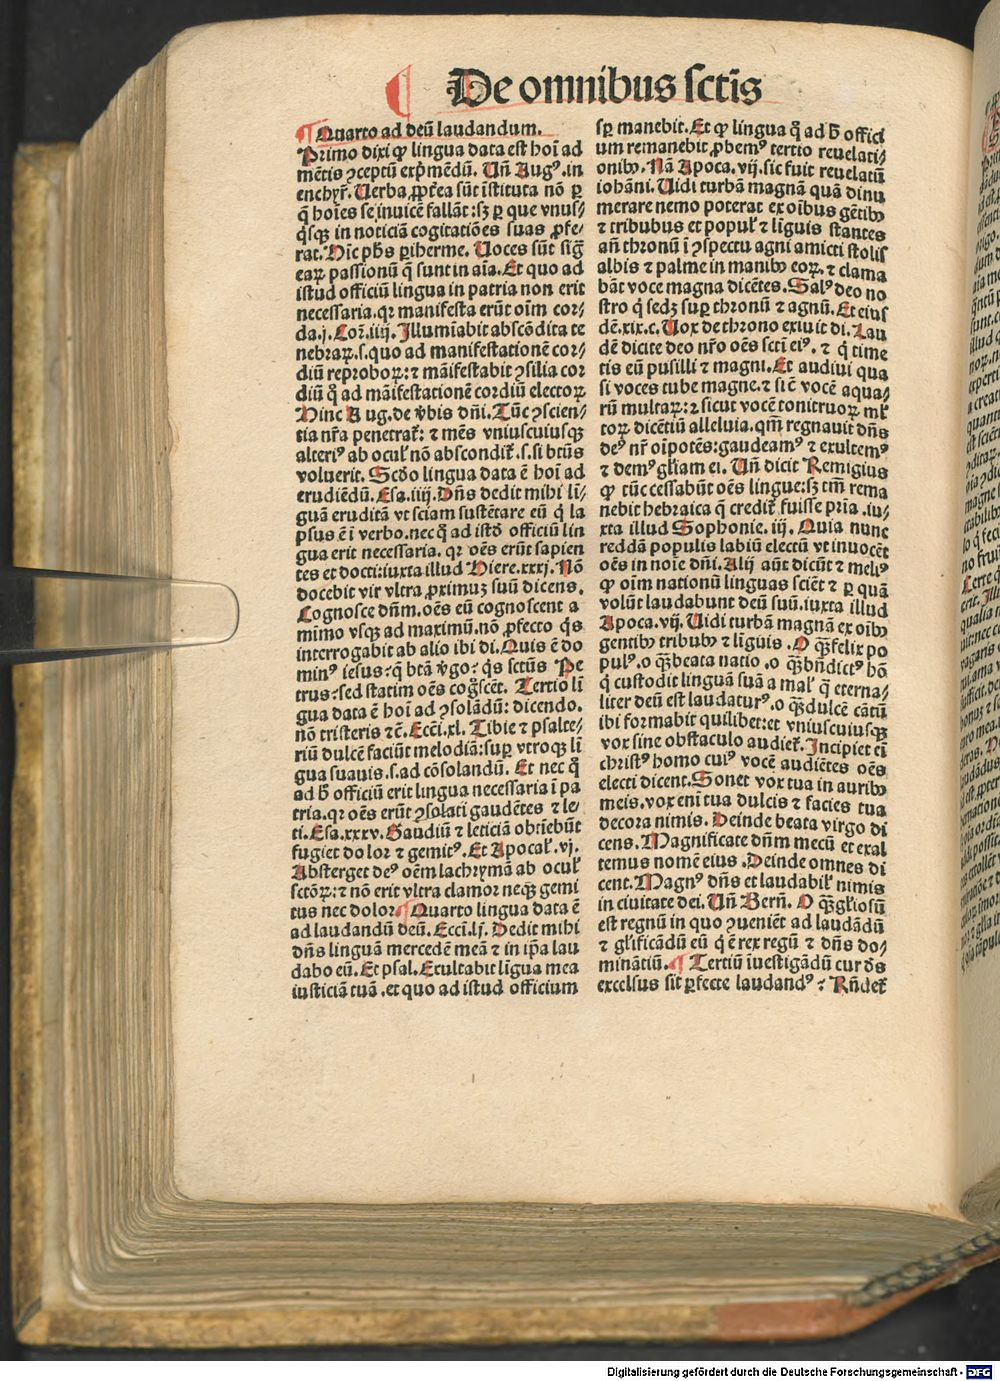 De omnibus sctīs
Quarto ad deū laudandum.
Primo dixi ꝙ lingua data est hoī ad
mētis ꝯceptū exp̄mēdū. Uñ Augꝰ. in
enchyr̄. Uerba ꝓprea sūt īstituta nō ꝑ
q̄ hoīes se īnuicē fallāt: sꝫ ꝑ que vnus⸗
q̄sqꝫ in noticiā cogitatiōes suas ꝓfe⸗
rat. Hīc pħs ꝑiherme. Uoces sūt siḡ
eaꝝ passionū q̄ sunt in aīa. Et quo ad
istud officiū lingua in patria non erit
necessaria. qꝛ manifesta erūt oīm cor⸗
da. j. Coꝛ. iiij. Illumīabit abscōdita te
nebraꝝ. s. quo ad manifestationē cor⸗
diū reproboꝝ: ⁊ māifestabit ꝯsilia cor
diū q̊ ad māifestationē cordiū electoꝝ
Hinc Aug. de v̄bis dn̄i. Tūc ꝯscien⸗
tia nr̄a penetrat̄: ⁊ mēs vniuscuiusqꝫ
alteriꝰ ab oculꝭ nō abscondit̄. s. si btūs
voluerit. Scd̄o lingua data ē hoī ad
erudiēdū. Esa. iiij. Dn̄s dedit mihi lī⸗
guā eruditā vt sciam sustētare eū q̄ la
psus ē ī verbo. nec q̊ ad istd̄ officiū lin
gua erit necessaria. qꝛ oēs erūt sapien
tes et docti: iuxta illud Hiere. xxxj. Nō
docebit vir vltra ꝓximuꝫ suū dicens.
Cognosce dn̄m. oēs eū cognoscent a
mīmo vsqꝫ ad maximū. nō ꝓfecto q̄s
interrogabit ab alio ibi di. Quis ē do
minꝰ iesus: q̄ btā v̄go: q̄s sctūs Pe
trus: sed statim oēs cog̊scēt. Tertio lī
gua data ē hoī ad ꝯsolādū: dicendo.
nō tristeris ⁊c̄. Ecci̅. xl. Tibie ⁊ psalte⸗
riū dulcē faciūt melodiā: suꝑ vtroqꝫ lī
gua suauis. s. ad cōsolandū. Et nec q̊
ad h̄ officiū erit lingua necessaria ī pa
tria. qꝛ oēs erūt ꝯsolati gaudētes ⁊ le⸗
ti. Esa. xxxv. Gaudiū ⁊ leticiā obtiebūt
fugiet dolor ⁊ gemitꝰ. Et Apocaꝉ. vj.
Absterget deꝰ oēm lachrymā ab oculꝭ
sctōꝝ: ⁊ nō erit vltra clamor neqꝫ gemi
tus nec dolor. Quarto lingua data ē
ad laudandū deū. Ecci̅. lj. Dedit mihi
dn̄s linguā mercedē meā ⁊ in ip̄a lau
dabo eū. Et psal. Exultabit līgua mea
iusticiā tuā. et quo ad istud officium
sꝑ manebit. Et ꝙ lingua q̊ ad h̄ offici
um remanebit ꝓbemꝰ tertio reuelati⸗
onibꝰ. Nā Apoca. vij. sic fuit reuelatū
iohāni. Uidi turbā magnā quā dinu
merare nemo poterat ex oībus gētibꝰ
⁊ tribubus et populꝭ ⁊ līguis stantes
añ thronū ī ꝯspectu agni amicti stolis
albis ⁊ palme in manibꝰ eoꝝ. ⁊ clama
bāt voce magna dicētes. Salꝰ deo no
stro q̄ sedꝫ suꝑ thronū ⁊ agnū. Et eius
dē. xix. c. Uox de throno exiuit di. Lau
dē dicite deo nr̄o oēs scti̅ eiꝰ. ⁊ q̄ time
tis eū pusilli ⁊ magni. Et audiui qua
si voces tube magne. ⁊ sic̄ vocē aqua⸗
rū multaꝝ: ⁊ sicut vocē tonitruoꝝ ml̄
toꝝ dicētiū alleluia. qm̄ regnauit dn̄s
deꝰ nr̄ oīpotēs: gaudeamꝰ ⁊ exultemꝰ
⁊ demꝰ gl̄iam ei. Uñ dicit Remigius
ꝙ tūc cessabūt oēs lingue: sꝫ tm̄ rema
nebit hebraica q̄ credit̄ fuisse pr̄ia. iu⸗
xta illud Sophonie. iij. Quia nunc
reddā populis labiū electū vt inuocēt
oēs in noīe dn̄i. Alij aūt dicūt ⁊ meliꝰ
ꝙ oīm nationū linguas sciēt ⁊ ꝑ quā
volūt laudabunt deū suū. iuxta illud
Apoca. vij. Uidi turbā magnā ex oībꝰ
gentibꝰ tribubꝰ ⁊ līguis. O q̄ꝫ felix po
pulꝰ. o q̄ꝫ beata natio. o q̄ꝫ bn̄dictꝰ hō
q̄ custodit linguā suā a malꝭ q̄ eterna⸗
liter deū est laudaturꝰ. o q̄ꝫ dulcē cātū
ibi formabit quilibet: et vniuscuiusqꝫ
vox sine obstaculo audiet̄. Incipiet eī
christꝰ homo cuiꝰ vocē audiētes oēs
electi dicent. Sonet vox tua in auribꝰ
meis. vox enī tua dulcis ⁊ facies tua
decora nimis. Deinde beata virgo di
cens. Magnificate dn̄m mecū et exal
temus nomē eius. Deinde omnes di
cent. Magnꝰ dn̄s et laudabilꝭ nimis
in ciuitate dei. Uñ Bern̄. O q̄ꝫ gl̄iosū
est regnū in quo ꝯueniēt ad laudādū
⁊ gl̄ificādū eū q̄ ē rex regū ⁊ dn̄s do⸗
minātiū. Tertiū īuestigādū cur d̄s
excelsus sit ꝑfecte laudandꝰ? Rn̄det̄
Digitalisierung gefördert durch die Deutsche Forschungsgemeinschaft - DFG